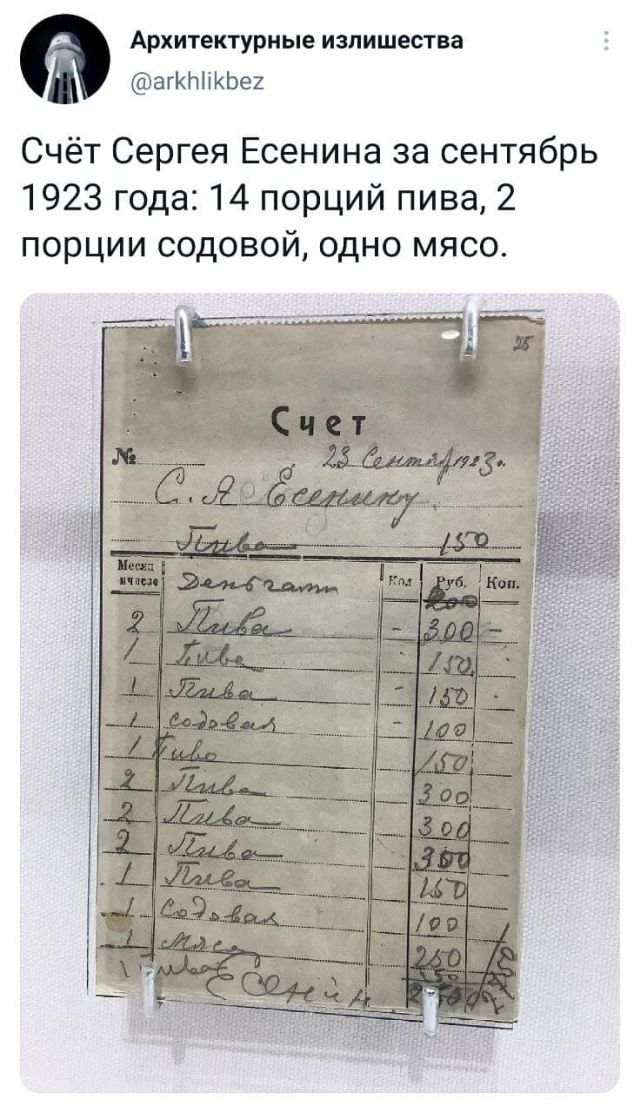 Архитектурные излишества
@arkhlikbez
Счёт Сергея Есенина за сентябрь
1923 года: 14 порций пива, 2
порции содовой, одно мясо.
25
Счет
№ 23 Сентяб 1923 г.
С. Я Есенину
Пива 150
Месяц и число Деньгами Кол Руб. Коп.
200
2 Пива - 300 -
1 Пива 150
1 Пива - 150
1 Содовая - 100
1 Пиво 150
2 Пива 300
2 Пива 300
2 Пива 300
1 Пива 150
1 Содовая 100
1 Мясо 250
1 Пива 150
Есенин